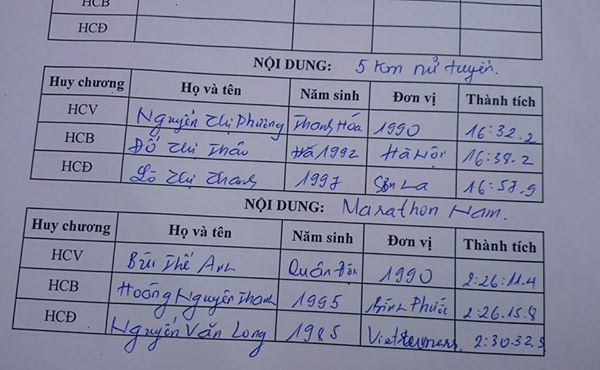 HCB
HCĐ
NỘI DUNG: 5 Km nữ tuyển.
Huy chương Họ và tên Năm sinh Đơn vị Thành tích
HCV Nguyễn Thị Phương Thanh Hóa 1990 16:32.2
HCB Đỗ Thị Thảo 1992 Hà Nội 16:38.2
HCĐ Lò Thị Thanh 1997 Sơn La 16:57.9
NỘI DUNG: Marathon Nam.
Huy chương Họ và tên Năm sinh Đơn vị Thành tích
HCV Bùi Thế Anh Quân Đội 1990 2:26:11.4
HCB Hoàng Nguyên Thanh 1995 Bình Phước 2:26.15.8
HCĐ Nguyễn Văn Long 1985 2:30.32.3